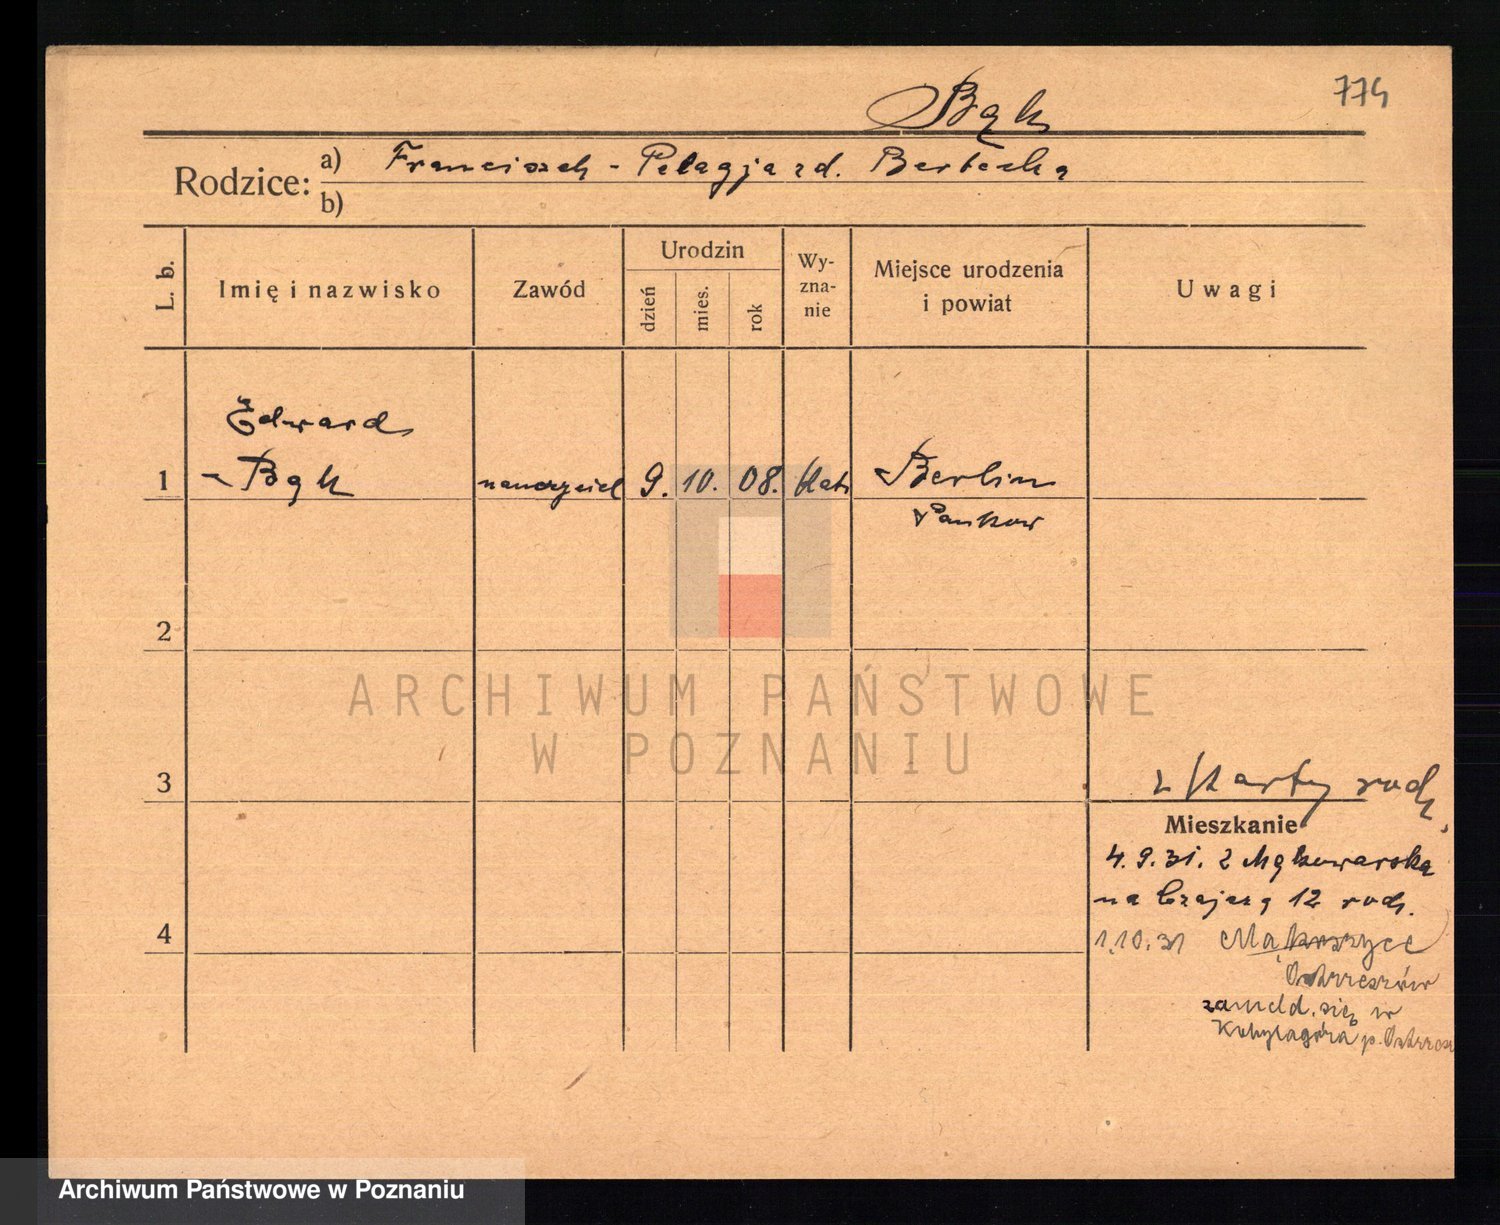 774
Bąk
Rodzice:
a) Franciszek - Pelagja zd. Bartecka
b)
L. b.
Imię i nazwisko
Zawód
Urodzin
dzień
mies.
rok
Wy-
zna-
nie
Miejsce urodzenia
i powiat
Uwagi
Edward
1 Bąk nauczyciel 9. 10. 08. kat. Berlin
Pankow
2
3
z karty rodz.
Mieszkanie
4. 9. 31. z Mąkowarska
na 12 rodz.
4
1.10.31
Ostrzeszów
zameld. się w
Kobylagóra p. Ostrzesz
ARCHIWUM PAŃSTWOWE
W POZNANIU
Archiwum Państwowe w Poznaniu